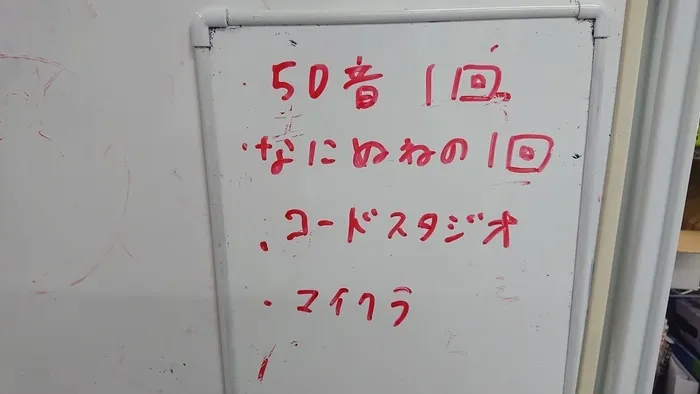 ・50音 1回
・なにぬねの1回
・コードスタジオ
・マイクラ